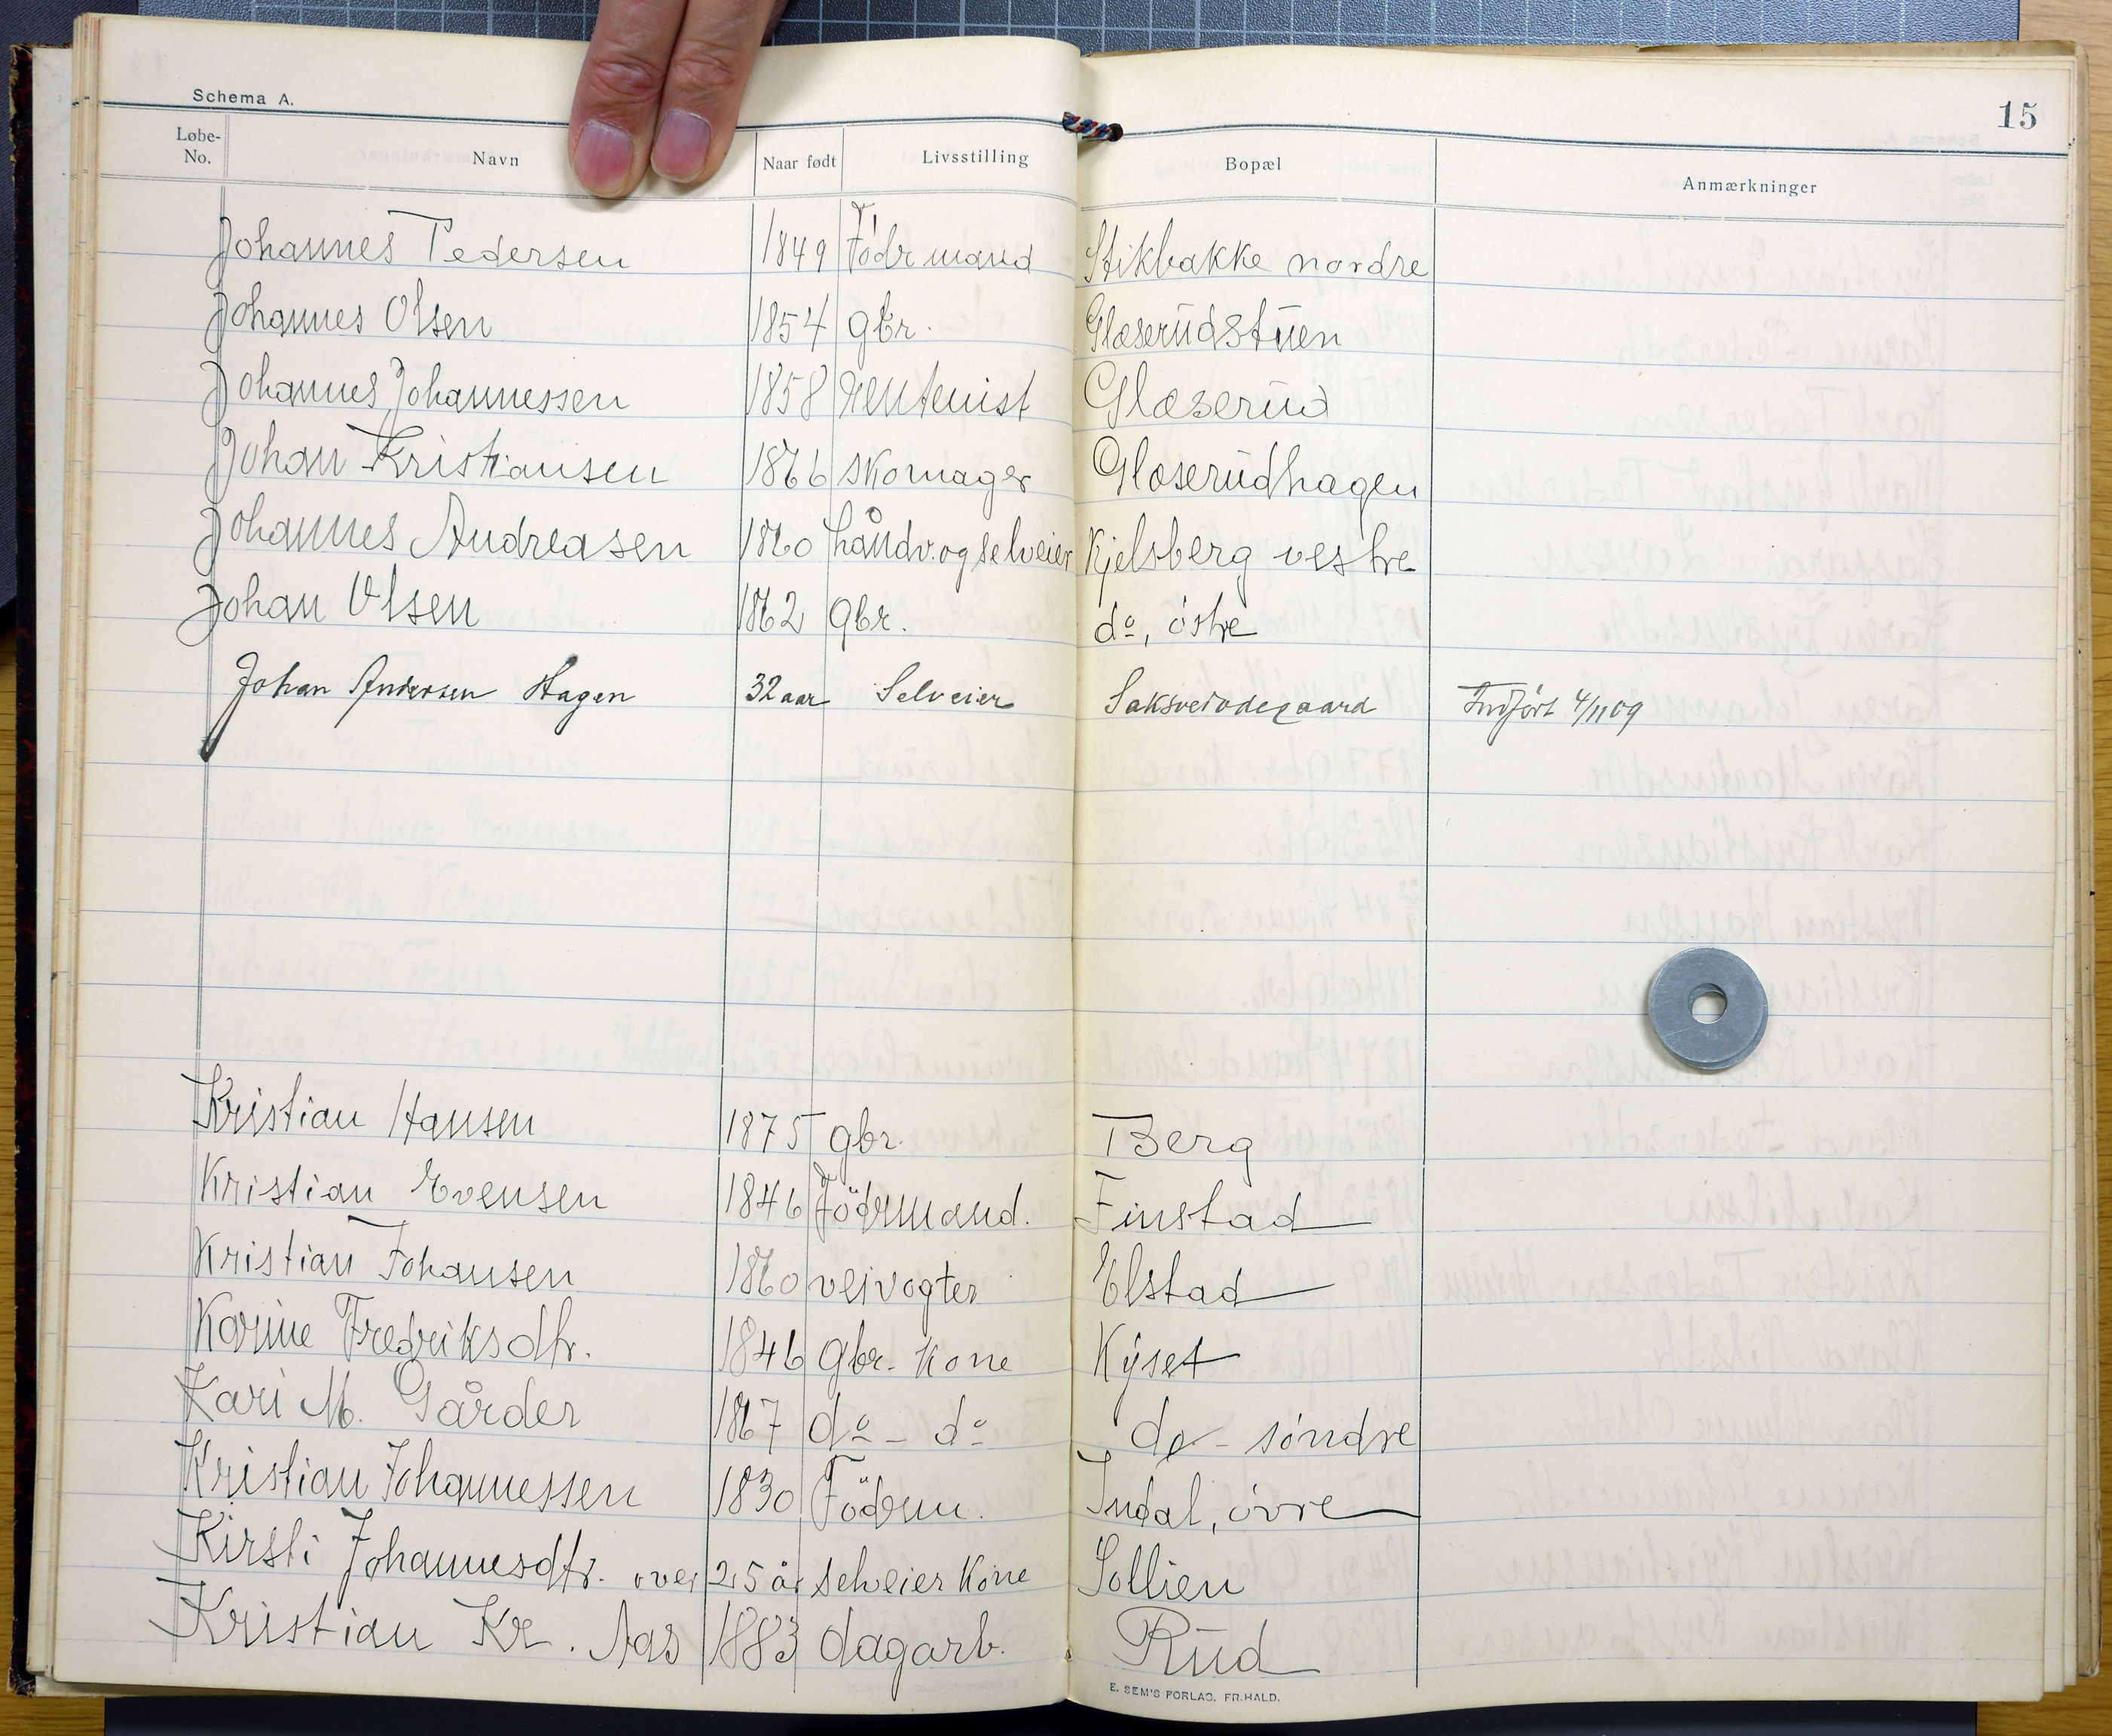 Schema A.
15
Løbe-No. Navn Naar født Livsstilling Bopæl Anmærkninger
Johannes Pedersen 1849 Födrmand Stikbakke nordre
Johannes Olsen 1854 gbr. Glæserudstuen
Johannes Johannessen 1858 rentenist Glæserud
Johan Kristiansen 1866 skomager Glæserudhagen
Johannes Andreasen 1860 håndv. og selveier Kjelsberg vestre
Johan Olsen 1862 gbr. do, östre
Johan Andersen Hagen 32 aar Selveier Saksveiødegaard Indført 4/11 09
Kristian Hansen 1875 gbr. Berg
Kristian Evensen 1846 Födrmand. Finstad
Kristian Johansen 1860 veivogter Elstad
Karine Fredriksdtr. 1846 gbr. kone Kyset
Kari M. Gårder 1867 do - do do - söndre
Kristian Johannessen 1830 Födrm. Indal, övre
Kirsti Johannesdtr. over 25 år selveier kone Sollien
Kristian Kr. Aas 1883 dagarb. Rud
E. SEM'S FORLAG, FR.HALD.